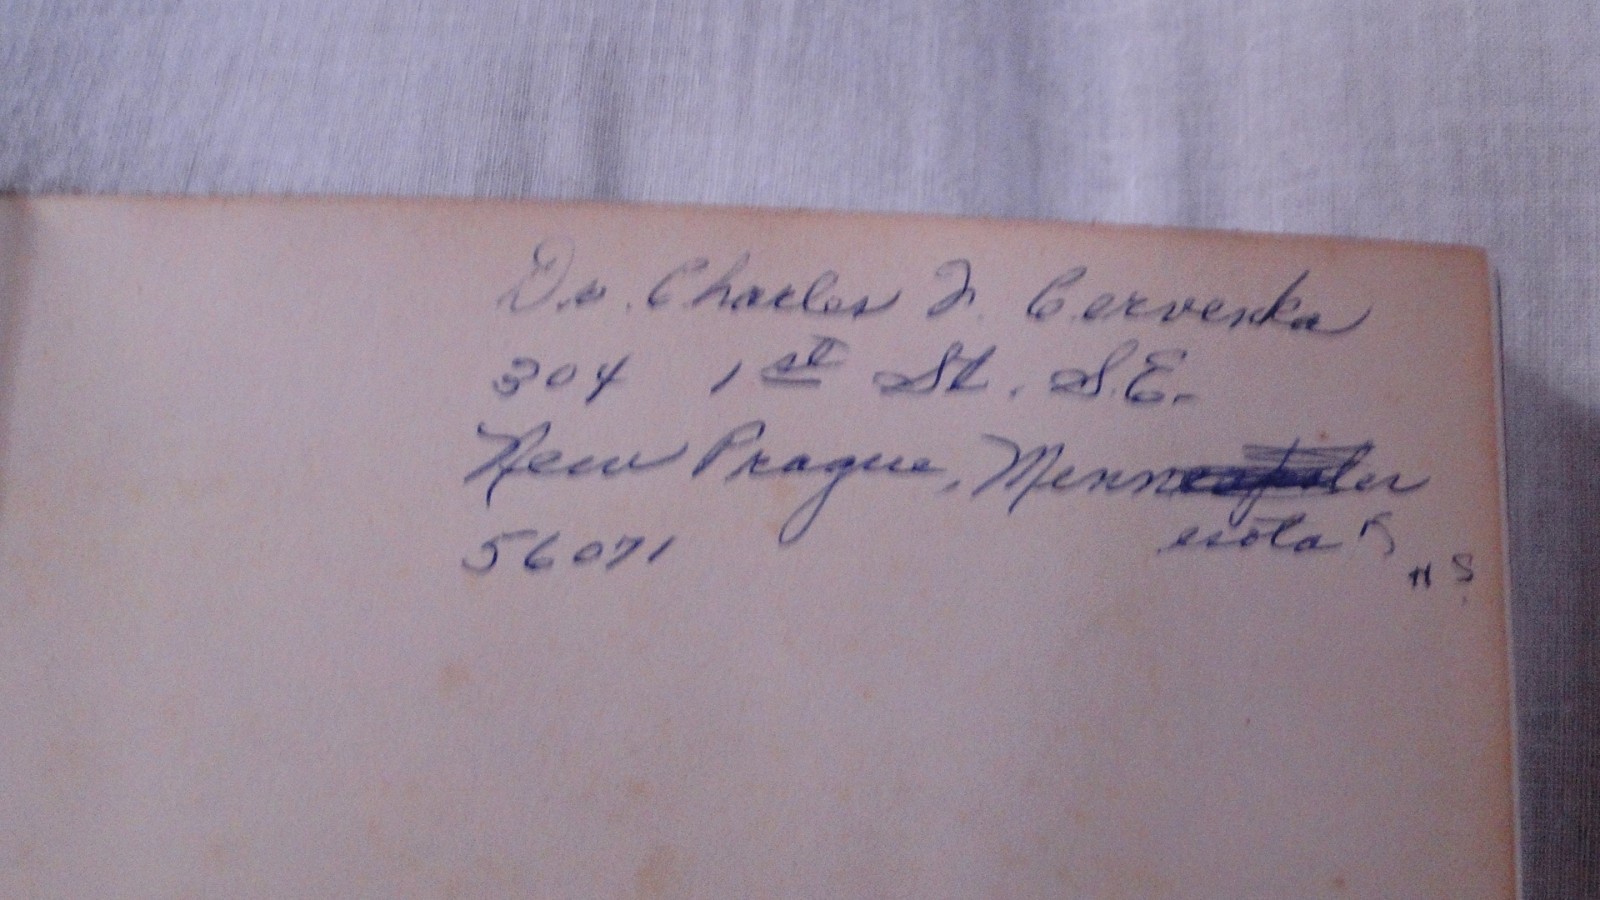 Dr. Charles F. Cervenka
304 1st St. S.E.
New Prague, Minn
esota
56071